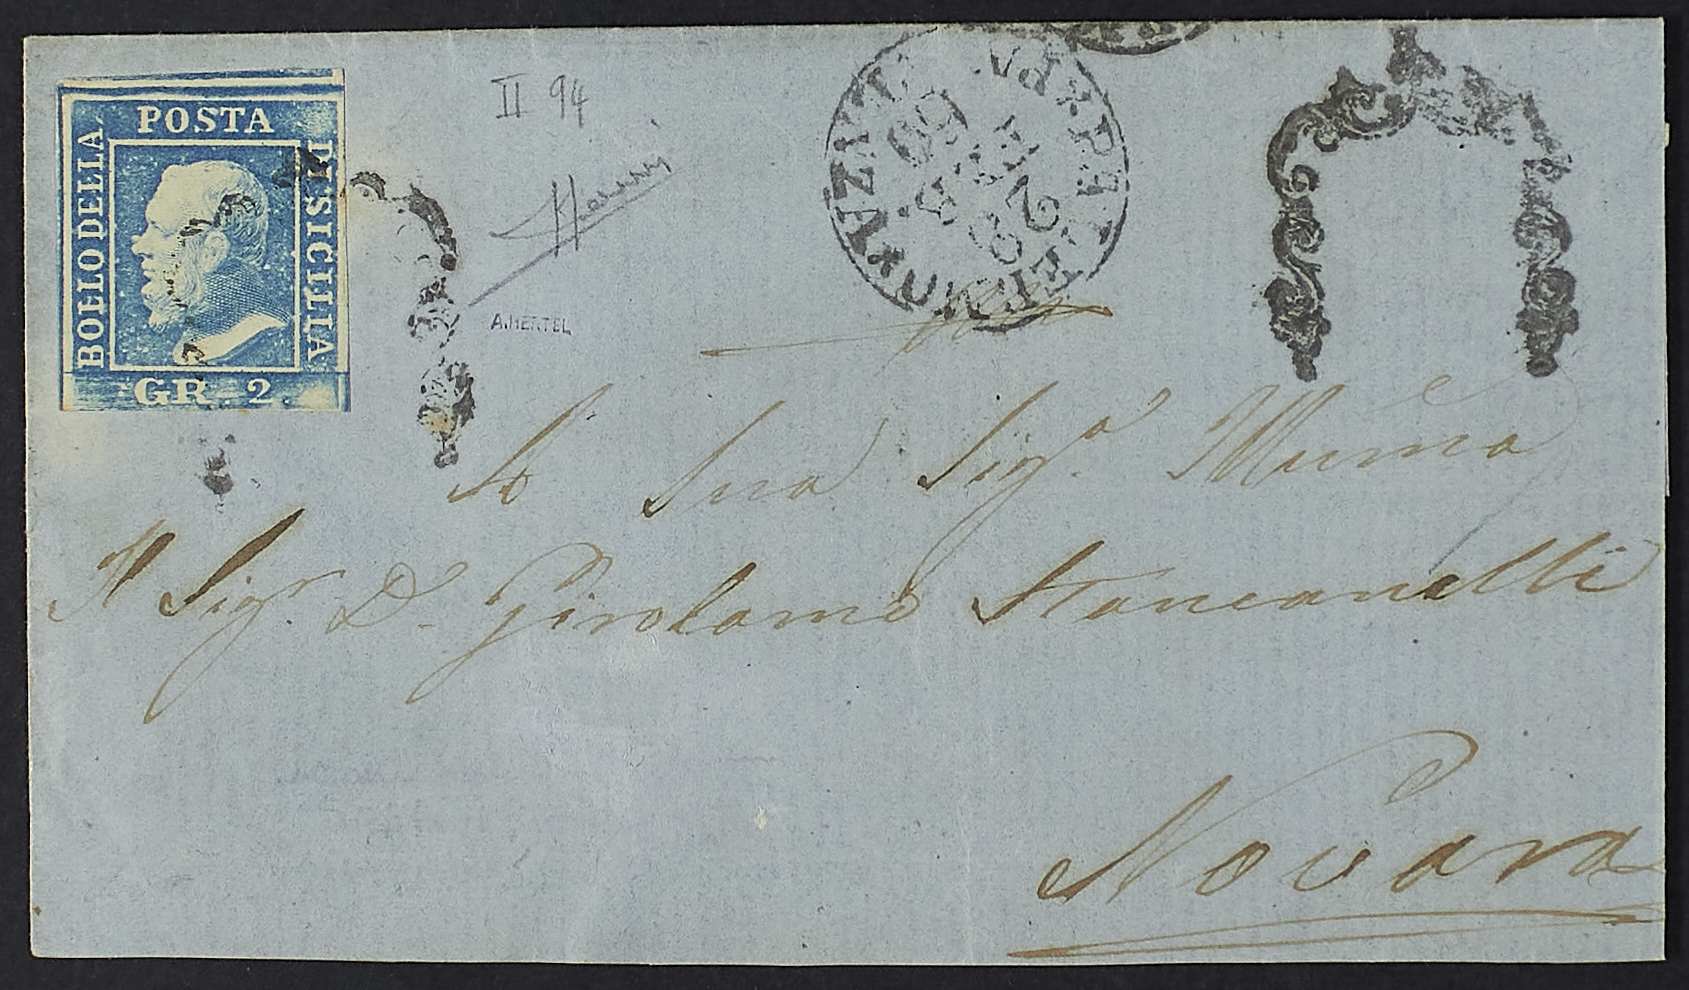 POSTA
BOLLO DELLA
DI SICILIA
GR. 2
II 94
A. HERTEL
28
FEB
60
PALERMO
A Sua Sig.ª
Il Sig.r D. Girolamo Stancanelli
Novara